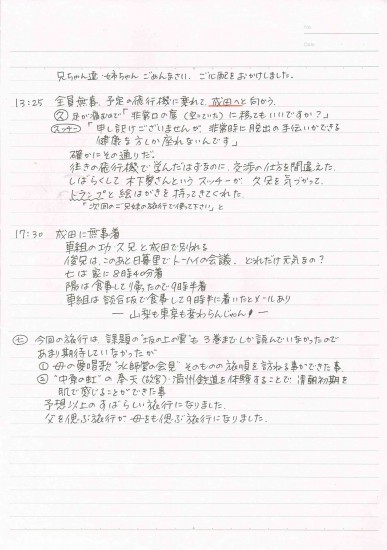 No.
Date
兄ちゃん達・姉ちゃん ごめんなさい、ご心配をおかけしました。
13:25 全員無事、予定の飛行機に乗れて、成田へと向かう。
久 足が痛むので「非常口の席（空いていた）に移ってもいいですか?」
スッチー 「申し訳ございませんが、非常時に脱出の手伝いができる
健康な方しか座れないんです」
確かにその通りだ。
往きの飛行機で学んだはずなのに、交渉の仕方を間違えた。
しばらくして 木下さんという スッチーが、久兄を気づかって、
トランプと絵はがきを持ってきてくれた。
「次回のご兄妹の旅行で使って下さい」と
17:30 成田に無事着
車組の功、久兄と成田で別れる
俊兄は、このあと日暮里でトーハイの会議、どれだけ元気なの?
七は家に8時40分着
陽は食事して帰ったので9時半着
車組は談合坂で食事して9時半に着いたとメールあり
― 山梨も東京も変わらんじゃん! ―
七 今回の旅行は、課題の"坂の上の雲"も3巻までしか読んでいなかったので
あまり期待していなかったが
① 母の愛唱歌"水師営の会見"そのものの旅順を訪ねる事ができた事
② "中原の虹"の奉天（故宮）・満州鉄道を体験することで、清朝初期を
肌で感じることができた事
予想以上のすばらしい旅行になりました。
父を偲ぶ旅行が母をも偲ぶ旅行になりました。